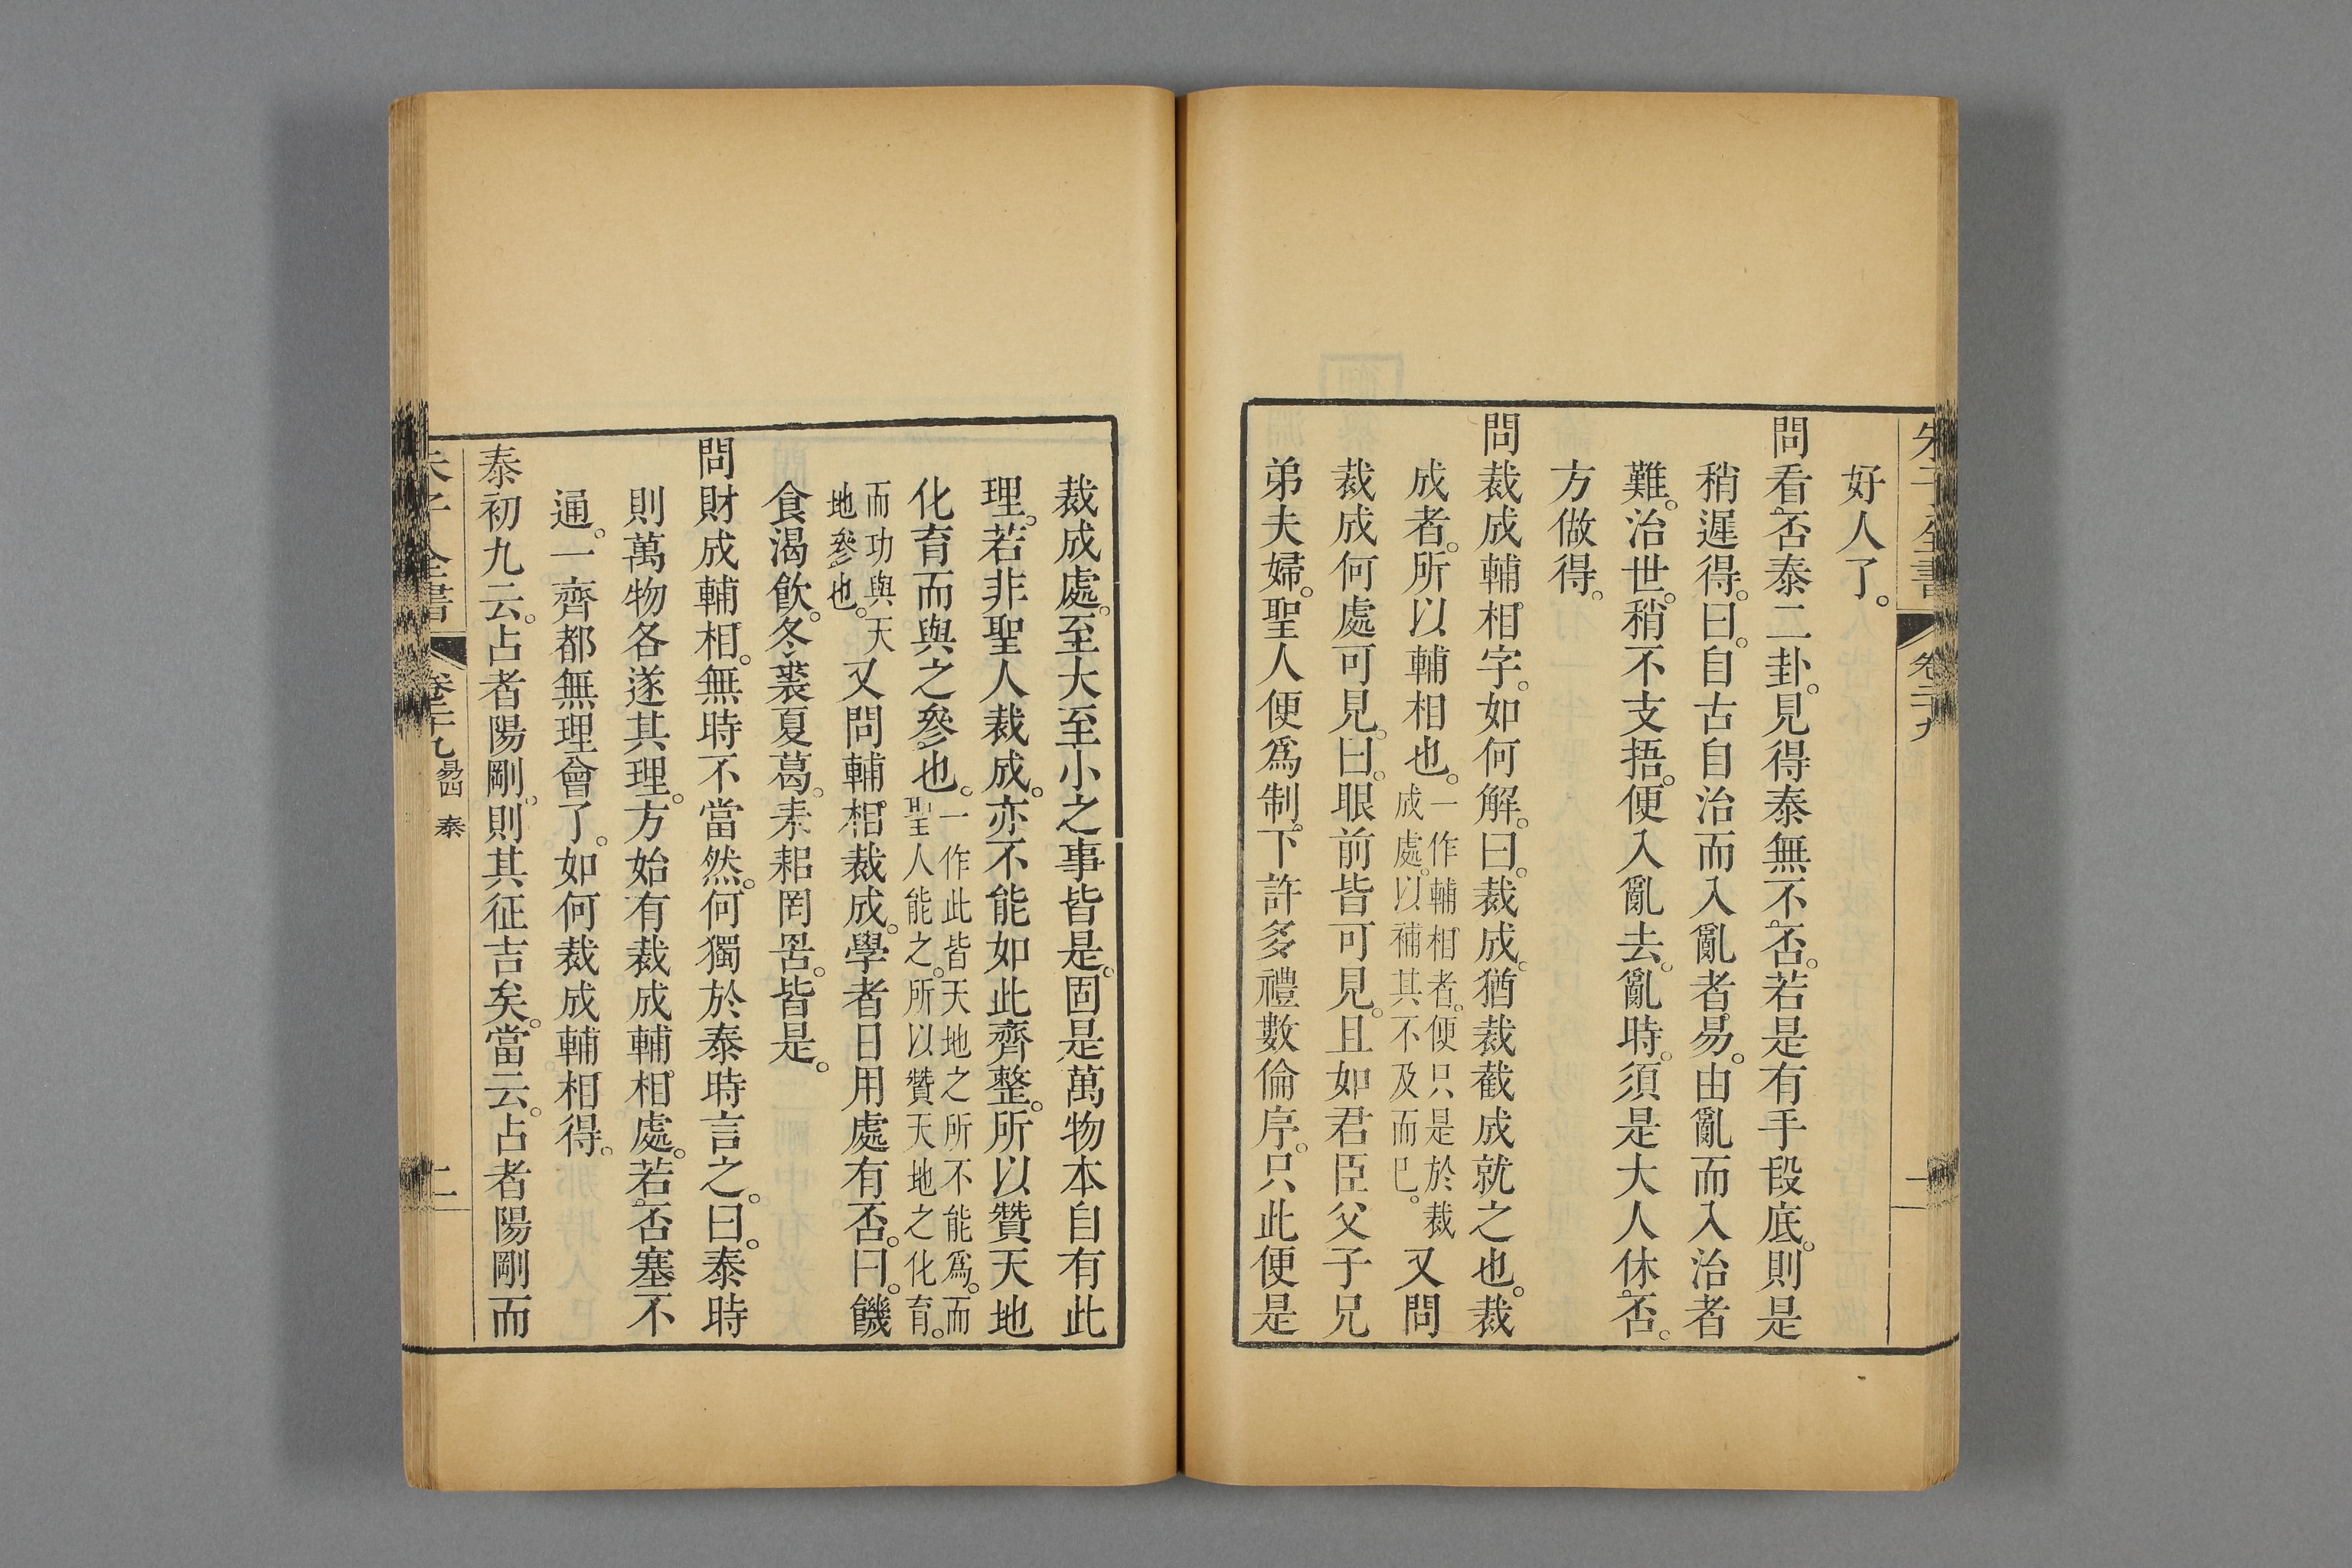 朱子全書
卷二十九
一
好人了。
問看否泰二卦。見得泰無不否。若是有手段底。則是
稍遲得。曰。自古自治而入亂者易。由亂而入治者
難。治世。稍不支捂。便入亂去。亂時。須是大人休否。
方做得。
問裁成輔相字。如何解。曰。裁成。猶裁截成就之也。裁
成者。所以輔相也。一作輔相者。便只是於裁成處。以補其不及而已。又問
裁成何處可見。曰。眼前皆可見。且如君臣父子兄
弟夫婦。聖人便爲制。下許多禮數倫序。只此便是
裁成處。至大至小之事皆是。固是萬物本自有此
理。若非聖人裁成。亦不能如此齊整。所以贊天地
化育而與之參也。一作此皆天地之所不能爲。而聖人能之。所以贊天地之化育。
而功與天地參也。又問輔相裁成。學者日用處有否。曰。饑
食渴飲。冬裘夏葛。耒耜罔罟。皆是。
問財成輔相。無時不當然。何獨於泰時言之。曰。泰時
則萬物各遂其理。方始有裁成輔相處。若否塞不
通。一齊都無理會了。如何裁成輔相得。
泰初九云。占者陽剛。則其征吉矣。當云。占者陽剛而
朱子全書
卷二十九 易四 泰
二